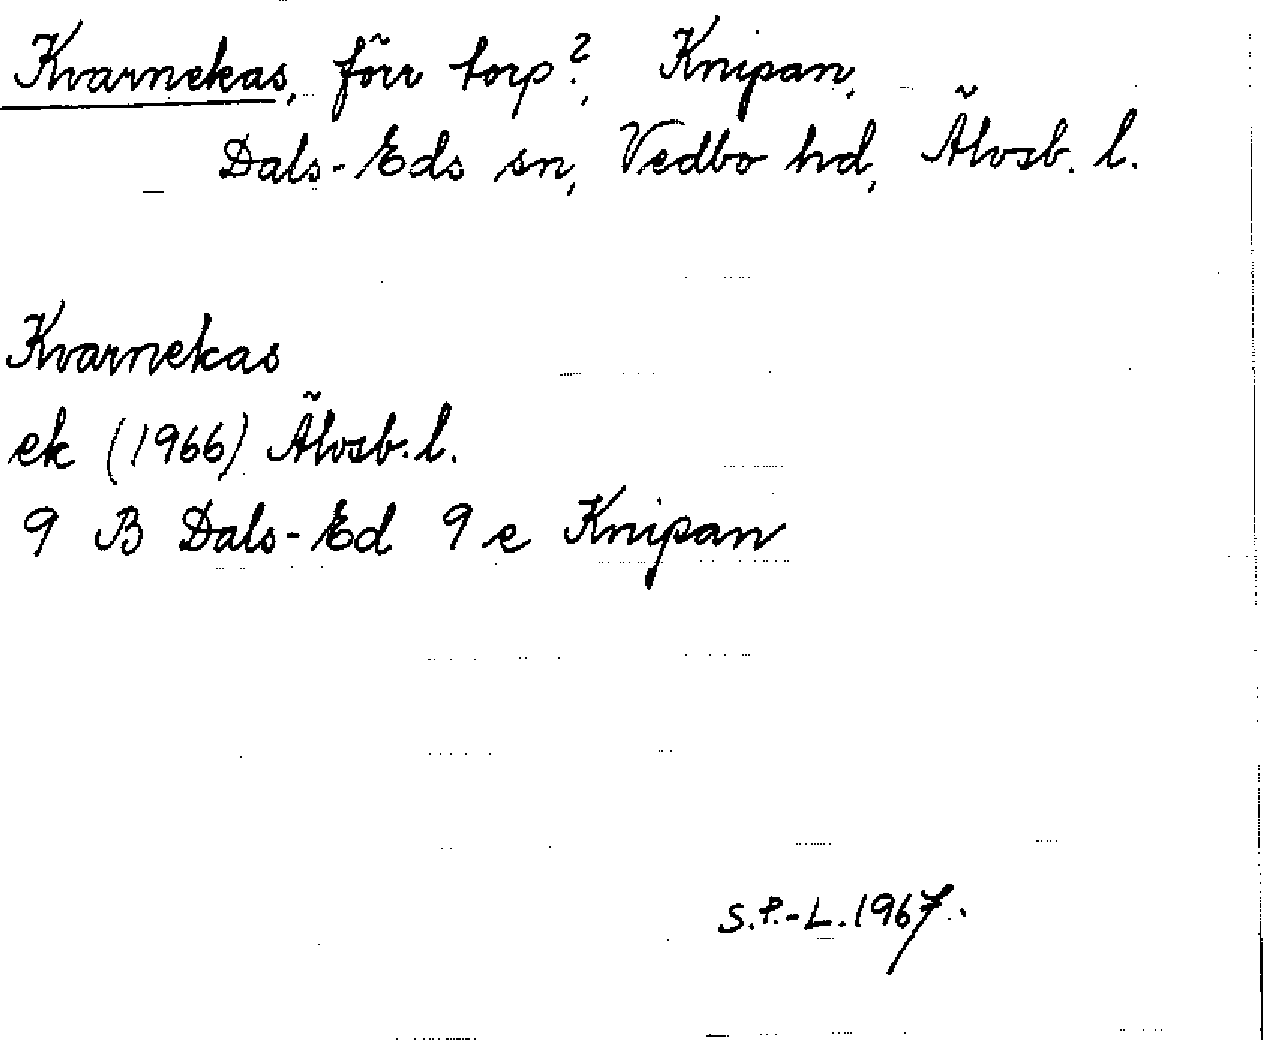 Kvarnekas, förr torp?, Knipan,
Dals-Eds sn, Vedbo hd, Älvsb. l.
Kvarnekas
ek (1966) Älvsb. l.
9 B Dals-Ed 9 e Knipan
S.P.-L. 1967.